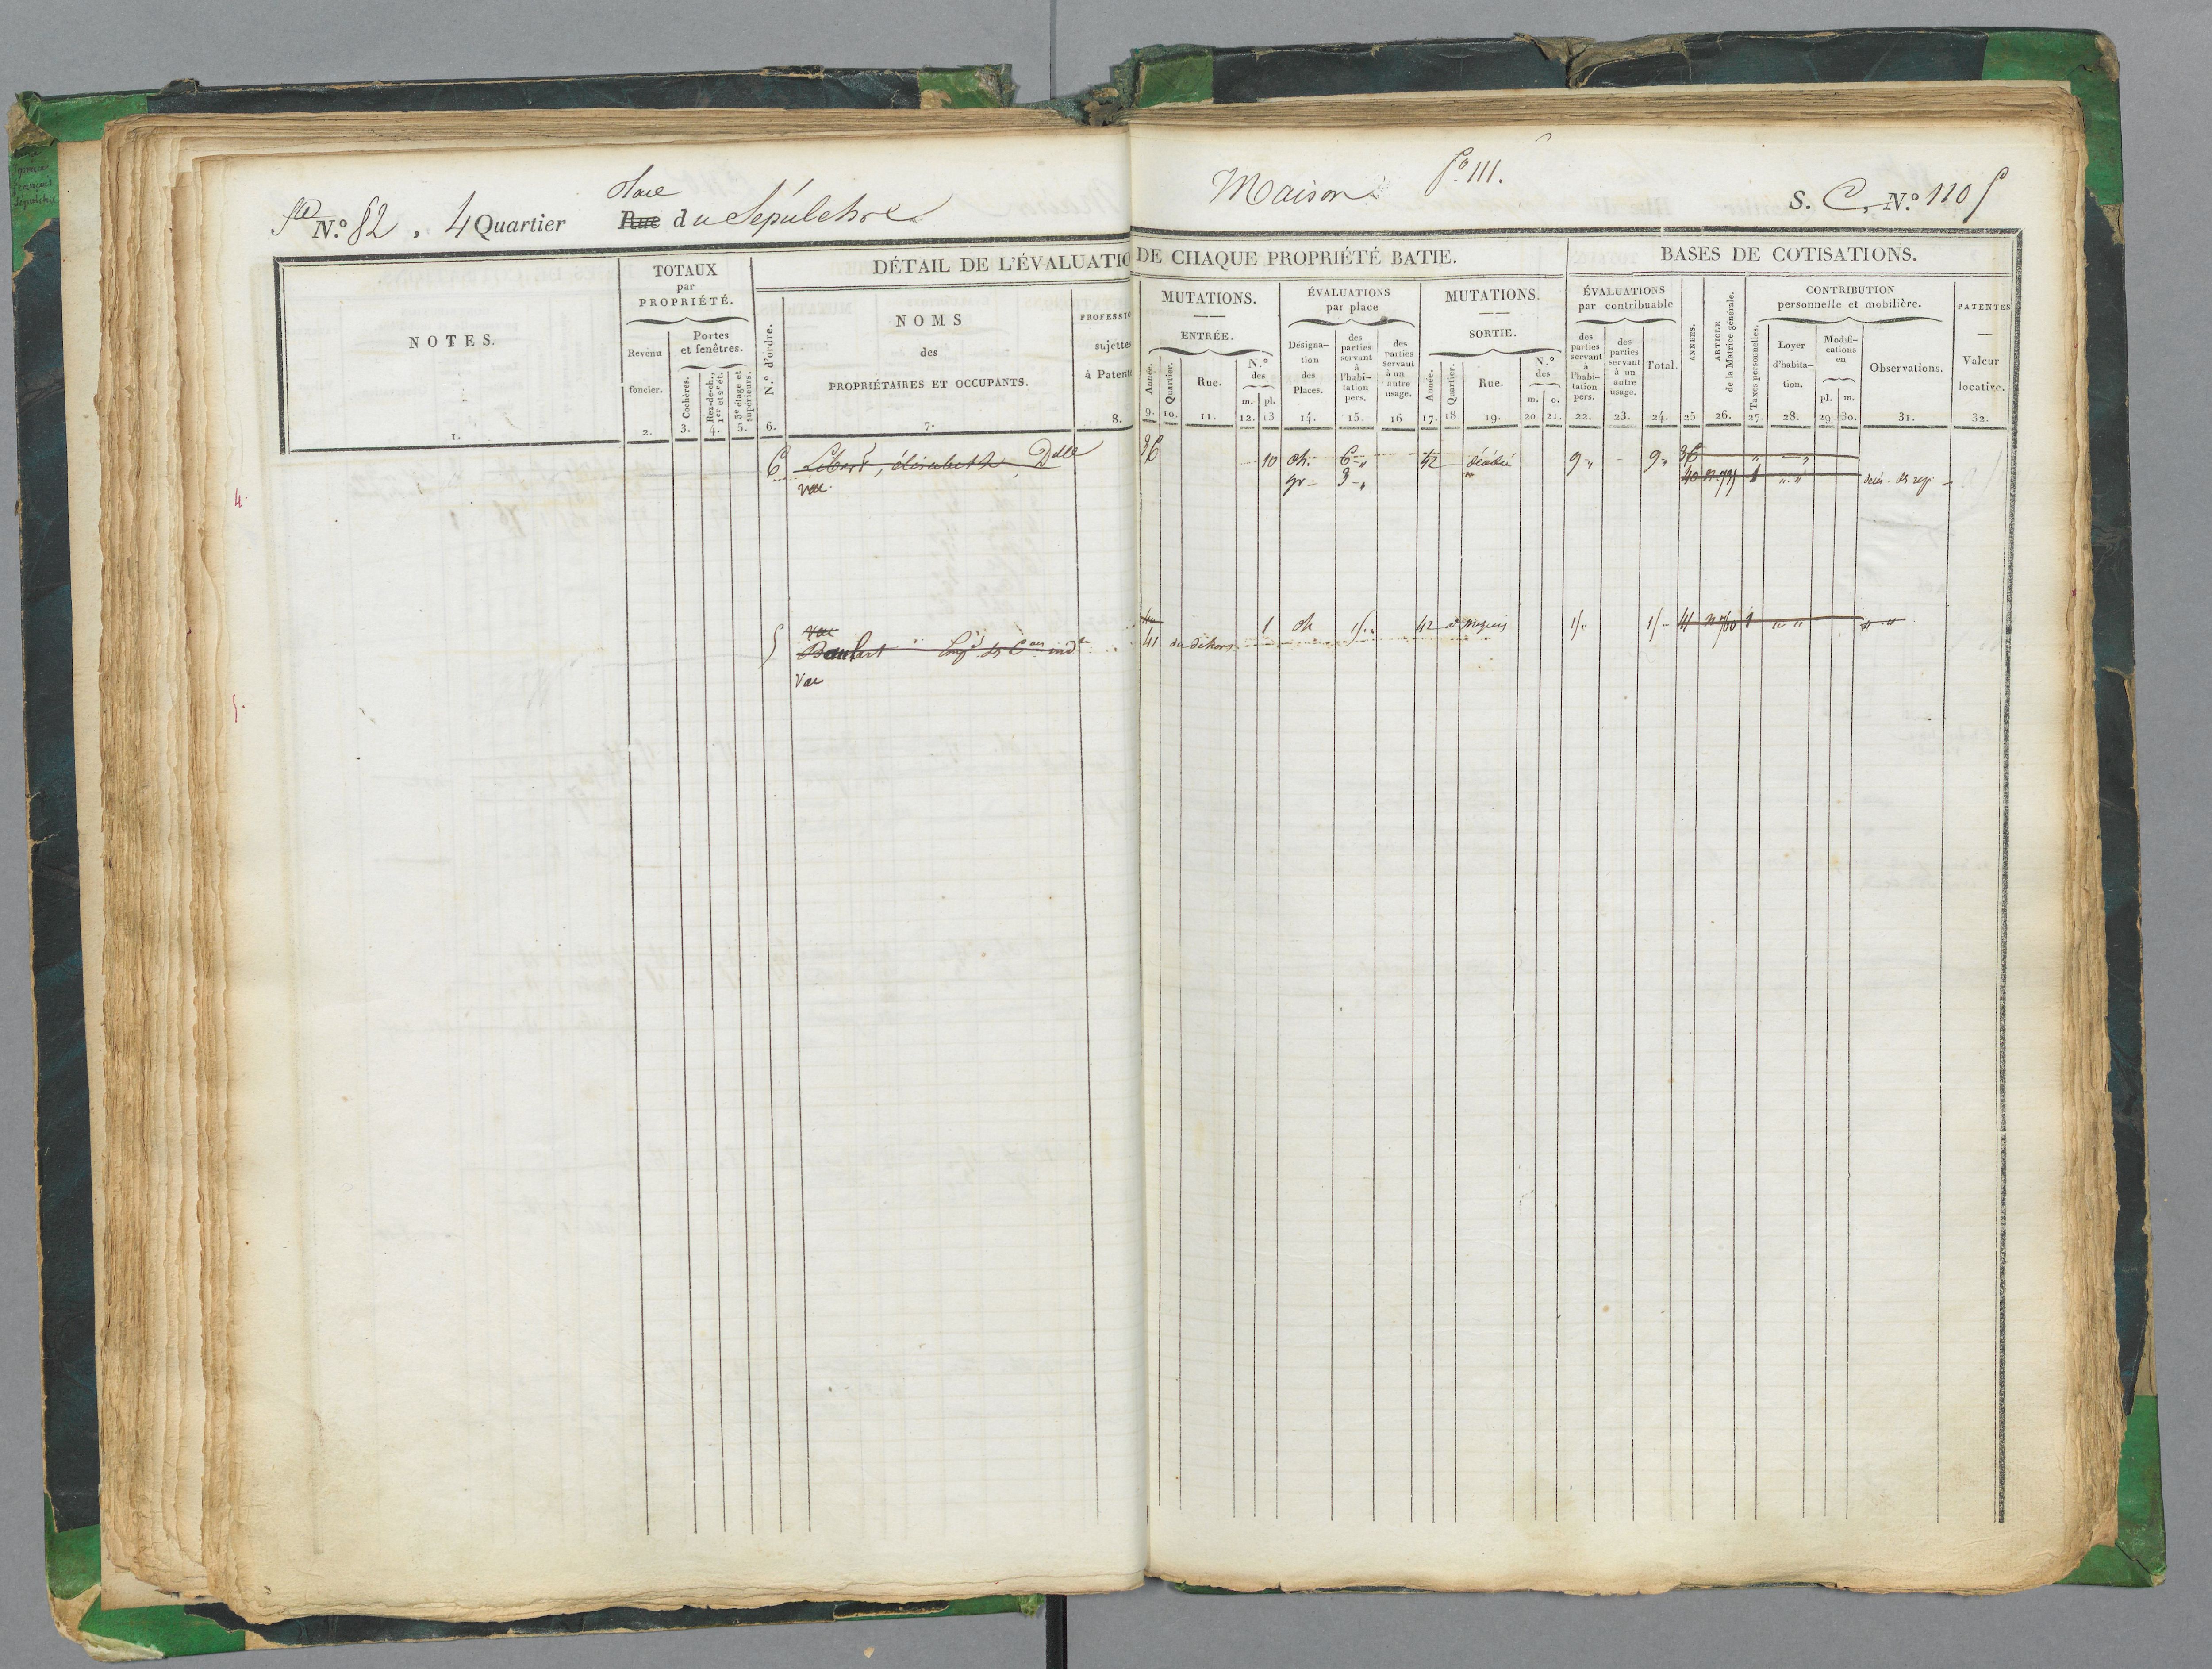 Place
Ste N.º 82. 4 Quartier Rue du Sépulchre
Maison fº 111.
S. C. N.º 1105
NOTES.
1.
TOTAUX
par
PROPRIÉTÉ.
Revenu
foncier.
2.
Portes
et fenêtres.
Cochères.
3.
Rez-de-ch.,
1er et 2e ét.
4.
3e étage et
supérieurs.
5.
DÉTAIL DE L'ÉVALUATIO
N.º d'ordre.
6.
NOMS
des
PROPRIÉTAIRES ET OCCUPANTS.
7.
PROFESSIO
sujettes
à Patente
8.
DE CHAQUE PROPRIÉTÉ BATIE.
MUTATIONS.
ENTRÉE.
Année.
9.
Quartier.
10.
Rue.
11.
N.º
des
m. pl.
12. 13
ÉVALUATIONS
par place
Désigna-
tion
des
Places.
14.
des
parties
servant
à
l'habi-
tation
pers.
15.
des
parties
servant
à un
autre
usage.
16
MUTATIONS.
SORTIE.
Année.
17.
Quartier.
18
Rue.
19.
N.º
des
m. o.
20 21.
BASES DE COTISATIONS.
ÉVALUATIONS
par contribuable
des
parties
servant
à
l'habi-
tation
pers.
22.
des
parties
servant
à un
autre
usage.
23.
Total.
24.
ANNÉES.
25
ARTICLE
de la Matrice générale.
26.
CONTRIBUTION
personnelle et mobilière.
Taxes personnelles.
27.
Loyer
d'habita-
tion.
28.
Modifi-
cations
en
pl. m.
29 30.
Observations.
31.
PATENTES
Valeur
locative.
32.
6 Libert, élisabeth, Dlle 36 10 ch. 6 " 42 décédée 9 " 9 " 36 " "
vac. gr 3 " 40 1 " "
4.
vac 40 1 ch 15 " 42 15 " 15 " 41 1 " " " "
5 41 du dehors
Vac
5.